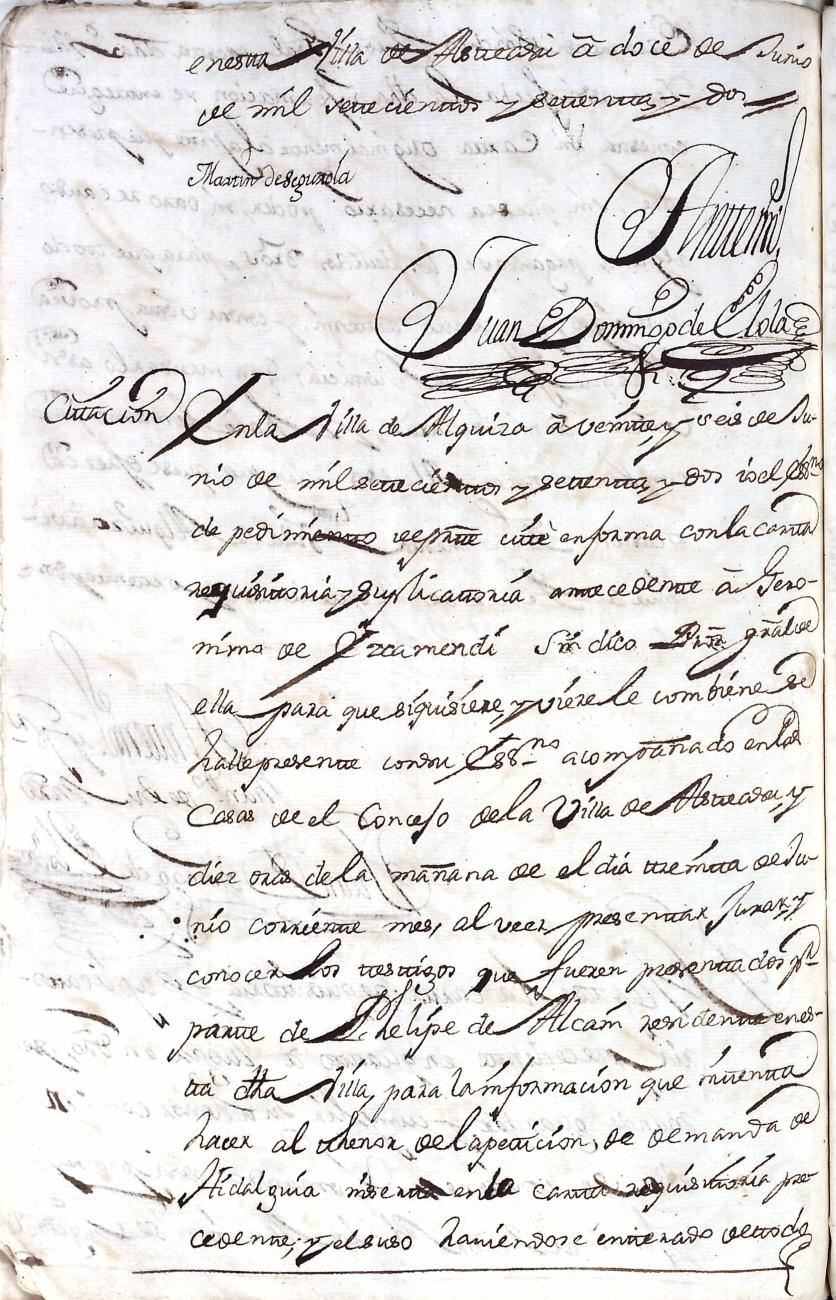 enesta Villa de Asteasu â doce de Junio
de mil setecientos y setenta, y dos
Martin de Segurola
Antemi,
Juan Domingo de Elola
Cittacion En la Villa de Alquiza â veinte, y seis de Ju-
nio de mil setecientos y setenta, y dos io el Essno
de pedimiento de parte citè en forma con la carta
requisitoria y suplicattoria antecedente â Gero-
nimo de Yrcamendi Sindico Prõr grãl de
ella para que si quisiere, y viere le combiene se
halle presente con su Essno acompañado en las
Casas de el Concejo de la Villa de Asteasu, y
diez oras de la mañana de el dia treinta de Ju-
nio corriente mes, al veer presentar, Jurar, y
conocer los testigos que fueren presentados pr
parte de Phelipe de Alcain residente enes-
ta dha Villa, para la informacion que intenta
hacer al thenor de la peticion, de demanda de
Hidalguia inserta en la carta requisitoria pre-
cedente; y el suso haviendose enterado de todo